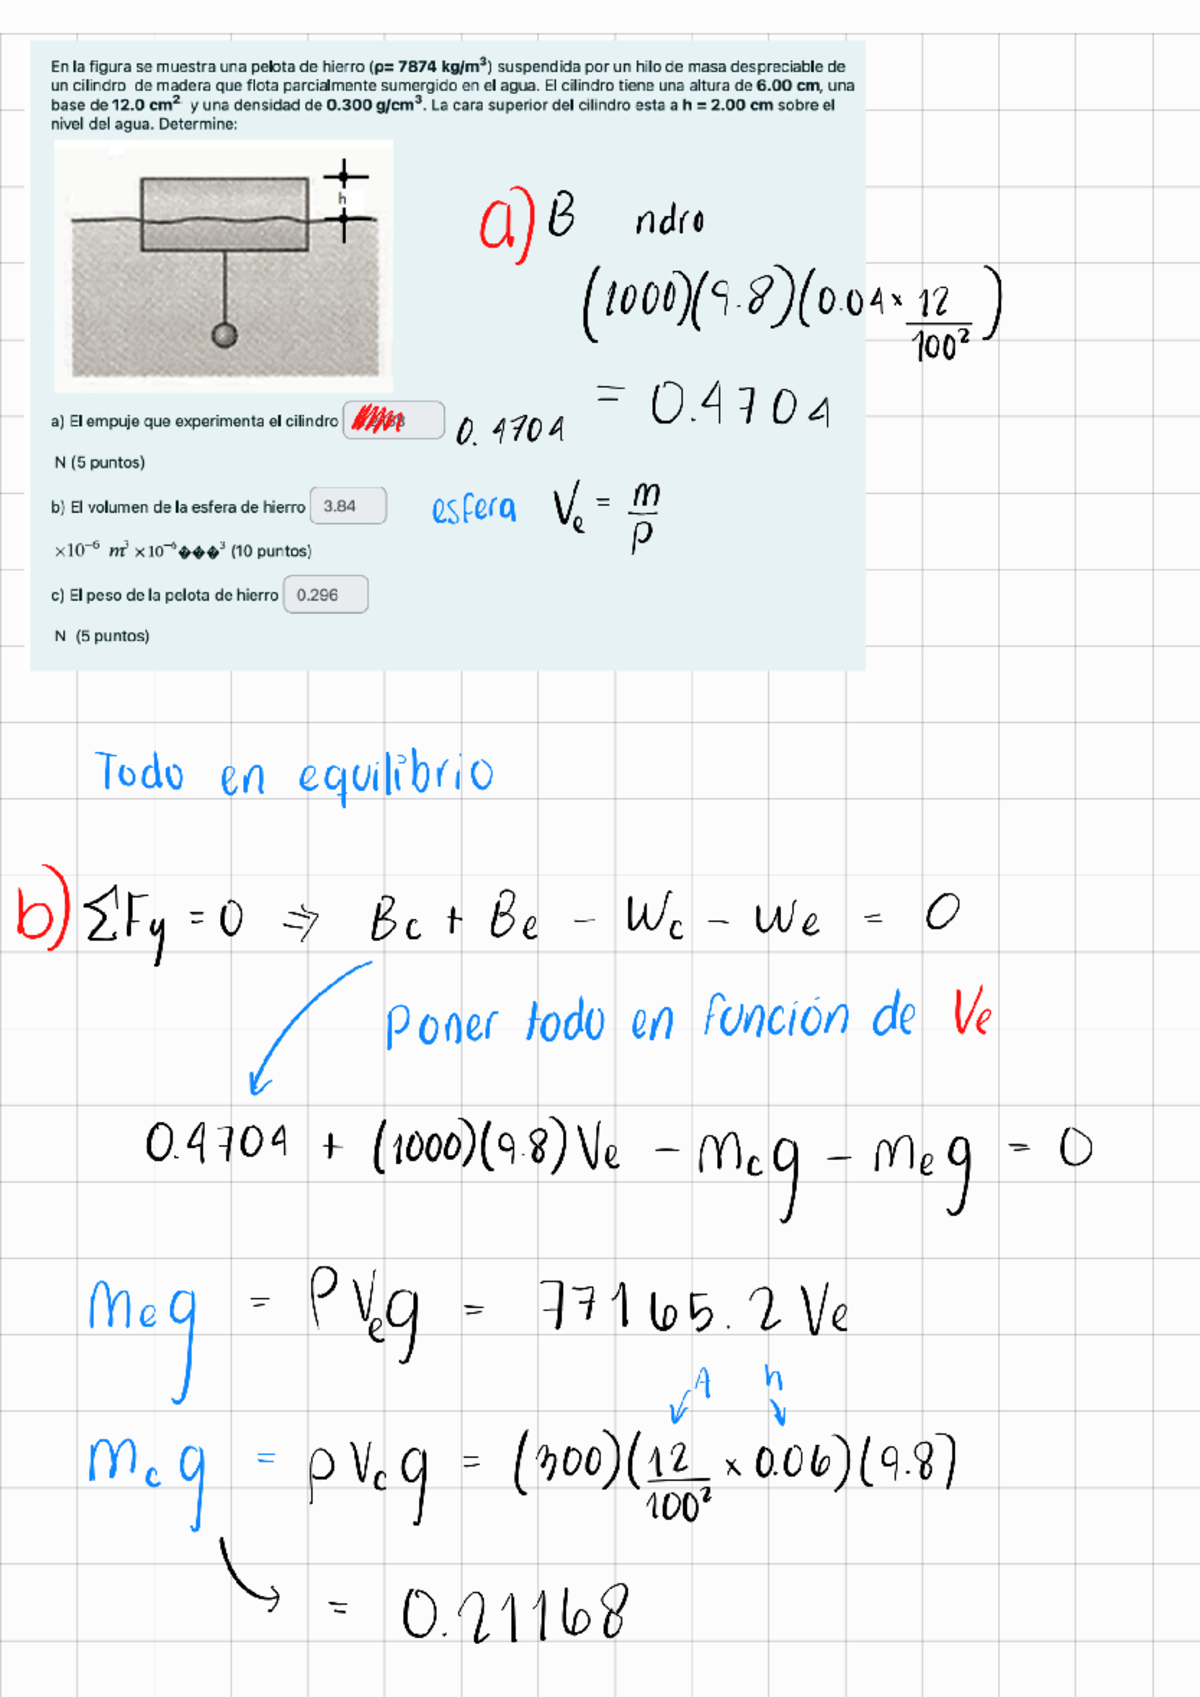 En la figura se muestra una pelota de hierro (ρ= 7874 kg/m³) suspendida por un hilo de masa despreciable de
un cilindro de madera que flota parcialmente sumergido en el agua. El cilindro tiene una altura de 6.00 cm, una
base de 12.0 cm² y una densidad de 0.300 g/cm³. La cara superior del cilindro esta a h = 2.00 cm sobre el
nivel del agua. Determine:
h
a) B ndro
(1000)(9.8)(0.04 × 12/100²)
= 0.4704
a) El empuje que experimenta el cilindro 0.4704
N (5 puntos)
b) El volumen de la esfera de hierro 3.84
esfera Ve = m/ρ
×10⁻⁶ m³ ×10⁻⁶���³ (10 puntos)
c) El peso de la pelota de hierro 0.296
N (5 puntos)
Todo en equilibrio
b) ΣFy = 0 ⇒ Bc + Be - Wc - We = 0
Poner todo en función de Ve
0.4704 + (1000)(9.8)Ve - mcg - meg = 0
meg = ρVeg = 77165.2 Ve
A h
mcg = ρVcg = (300)(12/100² × 0.06)(9.8)
= 0.21168